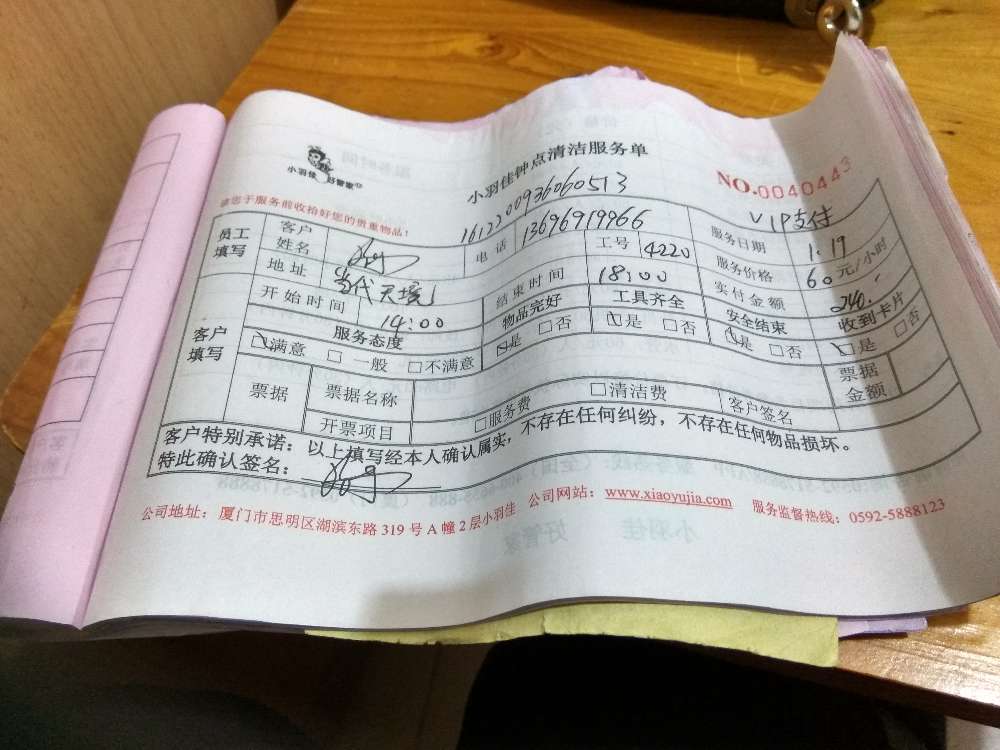 小羽佳 好管家
小羽佳钟点清洁服务单
NO.0040443
请您于服务前收拾好您的贵重物品!
1612200936060513
VIP支付
员工填写 客户姓名 电话 13696919966 服务日期 1.19
地址 当代天境 工号 4220 服务价格 60元/小时
客户填写 开始时间 14:00 结束时间 18:00 实付金额 240.
服务态度 物品完好 工具齐全 安全结束 收到卡片
☑满意 □一般 □不满意 ☑是 □否 ☑是 □否 ☑是 □否 ☑是 □否
票据 票据名称 □服务费 □清洁费 客户签名 票据金额
开票项目
客户特别承诺:以上填写经本人确认属实,不存在任何纠纷,不存在任何物品损坏。
特此确认签名:
公司地址:厦门市思明区湖滨东路319号A幢2层小羽佳 公司网站:www.xiaoyujia.com 服务监督热线:0592-5888123